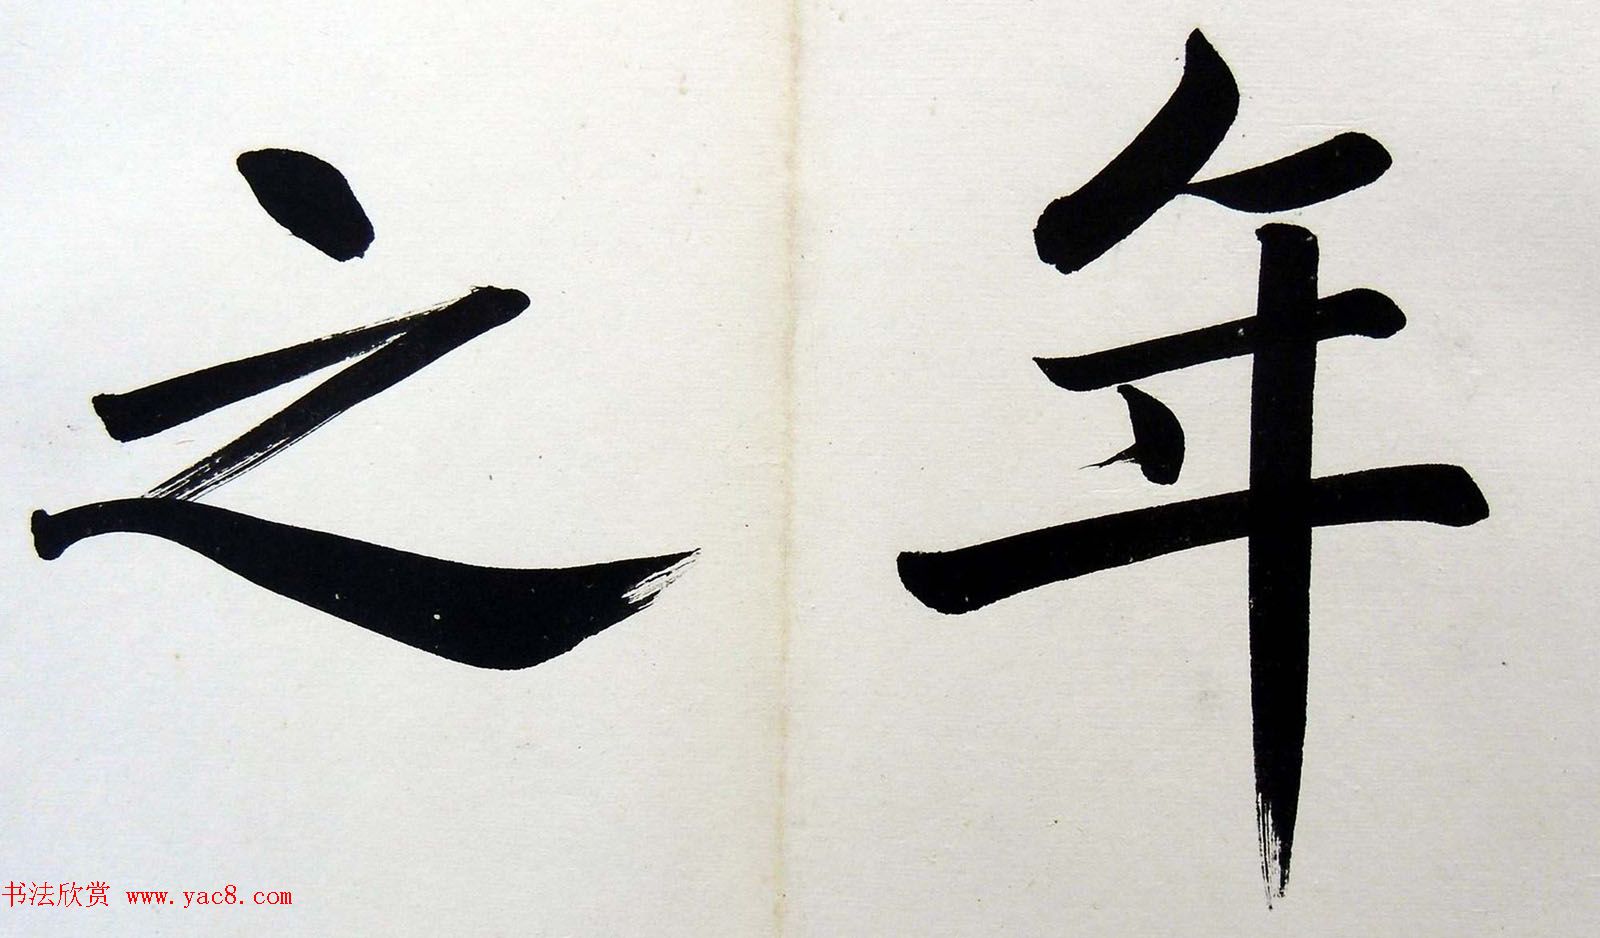 年
之
书法欣赏 www.yac8.com